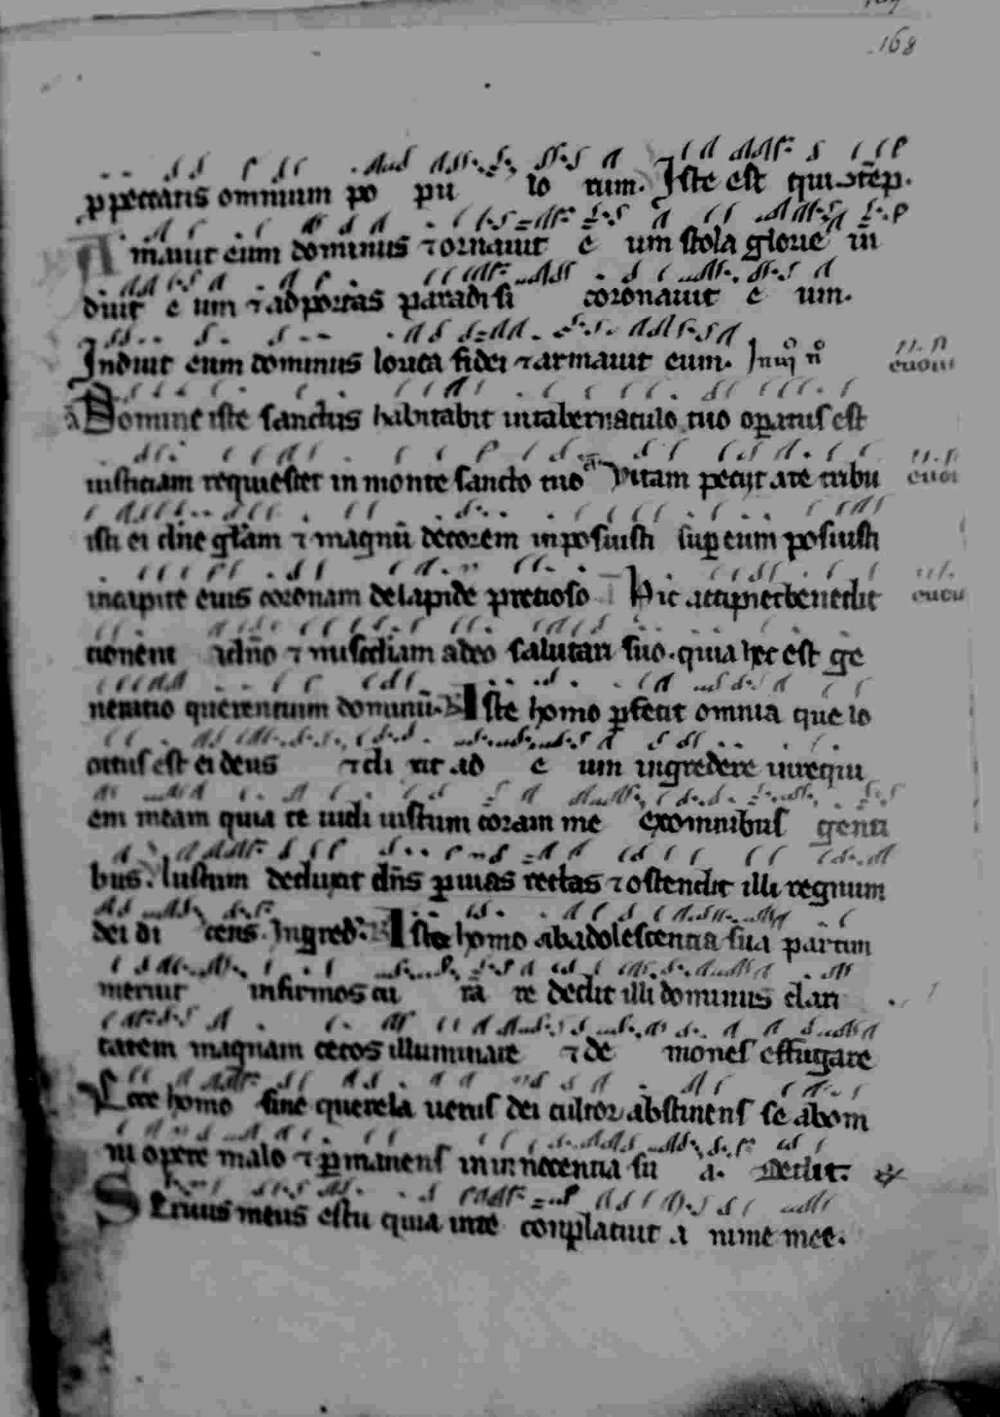 168
p peccatis omnium po pu lo rum. Iste est qui
Amauit eum dominus ⁊ ornauit e um stola glorie in
duit e um ⁊ ad portas paradisi coronauit e um.
Induit eum dominus lorica fidei ⁊ armauit eum.
Domine iste sanctus habitabit in tabernaculo tuo operatus est
iusticiam requiescet in monte sancto tuo Vitam petijt a te tribu
isti ei dne glam ⁊ magnu decorem inposuisti sup eum posuisti
in capite eius coronam de lapide precioso Hic accipiet benedic
tionem a dno ⁊ misericdiam a deo salutari suo. quia hec est ge
neratio querentium dominu. Iste homo pfecit omnia que lo
cutus est ei deus ⁊ di xit ad e um ingredere in requi
em meam quia te uidi iustum coram me ex omnibus genti
bus. Iustum deduxit dns p uias rectas ⁊ ostendit illi regnum
dei di cens. Ingred. Iste homo ab adolescentia sua partim
meruit infirmos cu ra re dedit illi dominus clari
tatem magnam cecos illuminare ⁊ de mones effugare
Ecce homo sine querela uerus dei cultor abstinens se ab om
ni opere malo ⁊ pmanens in innocentia su a. Dedit.
Seruus meus es tu quia in te conplacuit a nime mee.